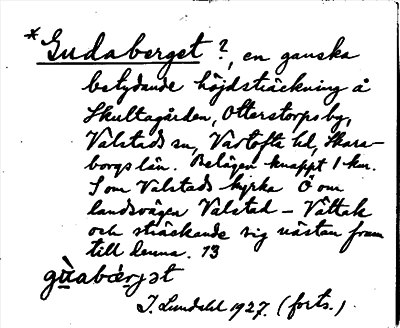 *Gudaberget ?, en ganska
betydande höjdsträckning å
Skultagården, Otterstorpsby,
Valstads sn, Vartofta hd, Skara-
borgs län. Belägen knappt 1 km.
S om Valstads kyrka Ö om
landsvägen Valstad - Vättak
och sträckande sig nästan fram
till denna. 13
gùabæ̀rjət
J. Lundahl 1927. (forts.)